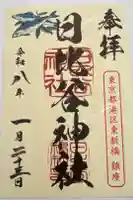 奉拝
東京都港区東新橋 鎮座
日比谷神社
令和八年
一月二十三日